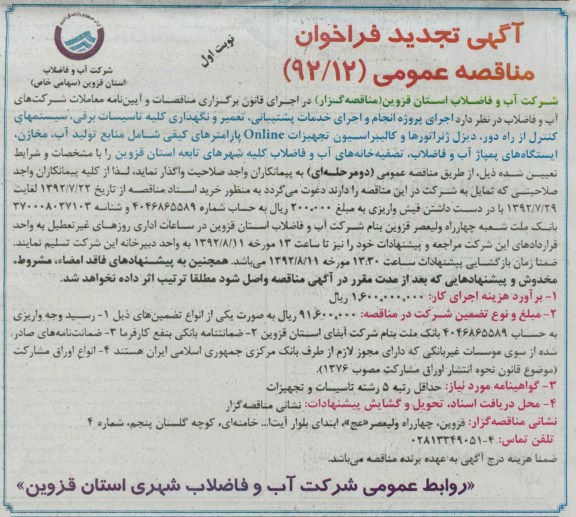 آگهی تجدید فراخوان
مناقصه عمومی (۹۲/۱۲)
نوبت اول
شرکت آب و فاضلاب
استان قزوین (سهامی خاص)
شرکت آب و فاضلاب استان قزوین(مناقصه‌گزار) در اجرای قانون برگزاری مناقصات و آیین‌نامه معاملات شرکت‌های
آب و فاضلاب در نظر دارد اجرای پروژه انجام و اجرای خدمات پشتیبانی، تعمیر و نگهداری کلیه تاسیسات برقی، سیستمهای
کنترل از راه دور، دیزل ژنراتورها و کالیبراسیون تجهیزات Online پارامترهای کیفی شامل منابع تولید آب، مخازن،
ایستگاه‌های پمپاژ آب و فاضلاب، تصفیه‌خانه‌های آب و فاضلاب کلیه شهرهای تابعه استان قزوین را با مشخصات و شرایط
تعیین شده ذیل، از طریق مناقصه عمومی (دومرحله‌ای) به پیمانکاران واجد صلاحیت واگذار نماید، لذا از کلیه پیمانکاران واجد
صلاحیتی که تمایل به شرکت در این مناقصه را دارند دعوت می‌گردد به منظور خرید اسناد مناقصه از تاریخ ۱۳۹۲/۷/۲۲ لغایت
۱۳۹۲/۷/۲۹ با در دست داشتن فیش واریزی به مبلغ ۲۰۰.۰۰۰ ریال به حساب شماره ۴۰۴۶۸۶۵۵۸۹ و شناسه ۳۷۰۰۰۸۰۲۷۱۰۳
بانک ملت شعبه چهارراه ولیعصر قزوین بنام شرکت آب و فاضلاب استان قزوین در ساعات اداری روزهای غیرتعطیل به واحد
قراردادهای این شرکت مراجعه و پیشنهادات خود را نیز تا ساعت ۱۳ مورخه ۱۳۹۲/۸/۱۱ به واحد دبیرخانه این شرکت تسلیم نمایند.
ضمنا زمان بازگشایی پیشنهادات ساعت ۱۳:۳۰ مورخه ۱۳۹۲/۸/۱۱ می‌باشد. همچنین به پیشنهادهای فاقد امضاء، مشروط،
مخدوش و پیشنهادهایی که بعد از مدت مقرر در آگهی مناقصه واصل شود مطلقا ترتیب اثر داده نخواهد شد.
۱- برآورد هزینه اجرای کار: ۱.۶۰۰.۰۰۰.۰۰۰ ریال
۲- مبلغ و نوع تضمین شرکت در مناقصه: ۹۱.۶۰۰.۰۰۰ ریال به صورت یکی از انواع تضمین‌های ذیل ۱- رسید وجه واریزی
به حساب ۴۰۴۶۸۶۵۵۸۹ بانک ملت بنام شرکت آبفای استان قزوین ۲- ضمانتنامه بانکی بنفع کارفرما ۳- ضمانت‌نامه‌های صادر،
شده از سوی موسسات غیربانکی که دارای مجوز لازم از طرف بانک مرکزی جمهوری اسلامی ایران هستند ۴- انواع اوراق مشارکت
(موضوع قانون نحوه انتشار اوراق مشارکت مصوب ۱۳۷۶).
۳- گواهینامه مورد نیاز: حداقل رتبه ۵ رشته تاسیسات و تجهیزات
۴- محل دریافت اسناد، تحویل و گشایش پیشنهادات: نشانی مناقصه‌گزار
نشانی مناقصه‌گزار: قزوین، چهارراه ولیعصر«عج»، ابتدای بلوار آیت‌ا... خامنه‌ای، کوچه گلستان پنجم، شماره ۴
تلفن تماس: ۴-۰۲۸۱۳۳۴۹۰۵۱
ضمنا هزینه درج آگهی به عهده برنده مناقصه می‌باشد.
«روابط عمومی شرکت آب و فاضلاب شهری استان قزوین»